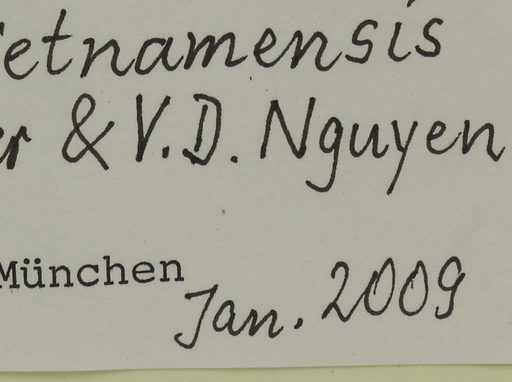 etnamensis
r & V.D. Nguyen
München
Jan. 2009